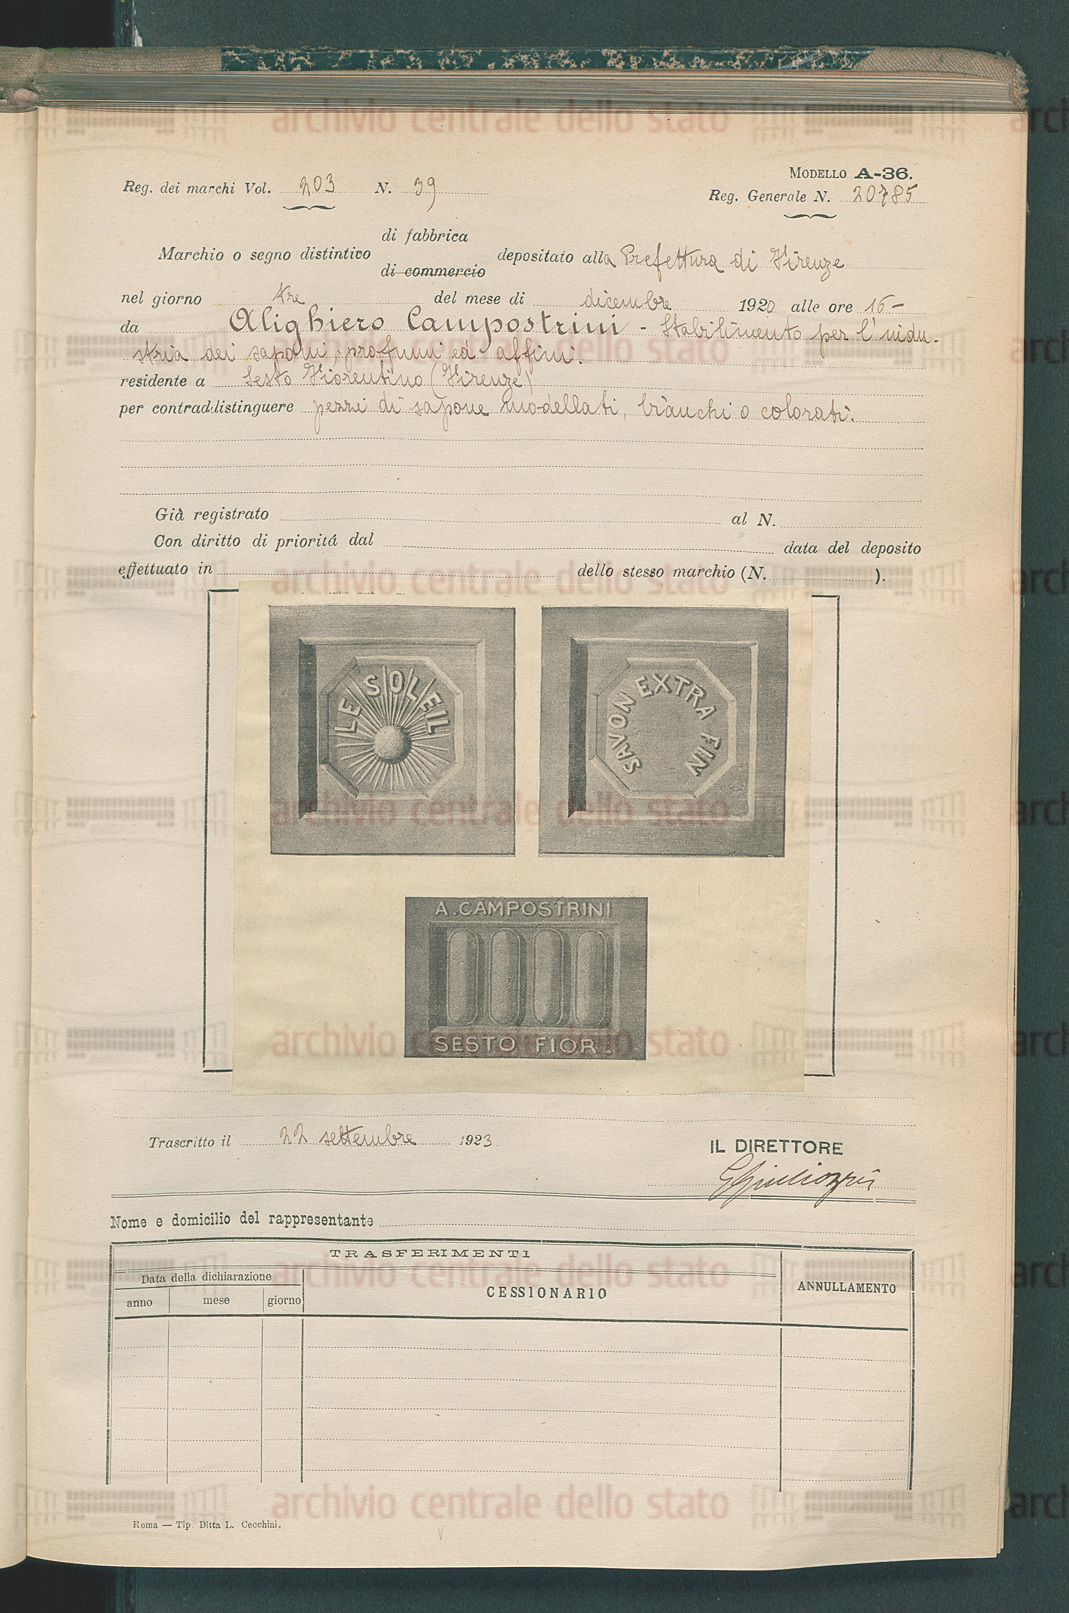 MODELLO A-36.
Reg. dei marchi Vol. 203 N. 39
Reg. Generale N. 20785
di fabbrica
Marchio o segno distintivo depositato alla Prefettura di Firenze
di commercio
nel giorno tre del mese di dicembre 1920 alle ore 16-
da Alighiero Campostrini - Stabilimento per l'indu-
stria dei saponi, profumi ed affini.
residente a Sesto Fiorentino (Firenze)
per contraddistinguere pezzi di sapone modellati, bianchi o colorati.
Già registrato al N.
Con diritto di priorità dal data del deposito
effettuato in dello stesso marchio (N. ).
LE SOLEIL
SAVON EXTRA FIN
A. CAMPOSTRINI
SESTO FIOR.
Trascritto il 22 settembre 1923
IL DIRETTORE
Nome e domicilio del rappresentante
TRASFERIMENTI
Data della dichiarazione
anno mese giorno
CESSIONARIO
ANNULLAMENTO
Roma — Tip. Ditta L. Cecchini.
archivio centrale dello stato